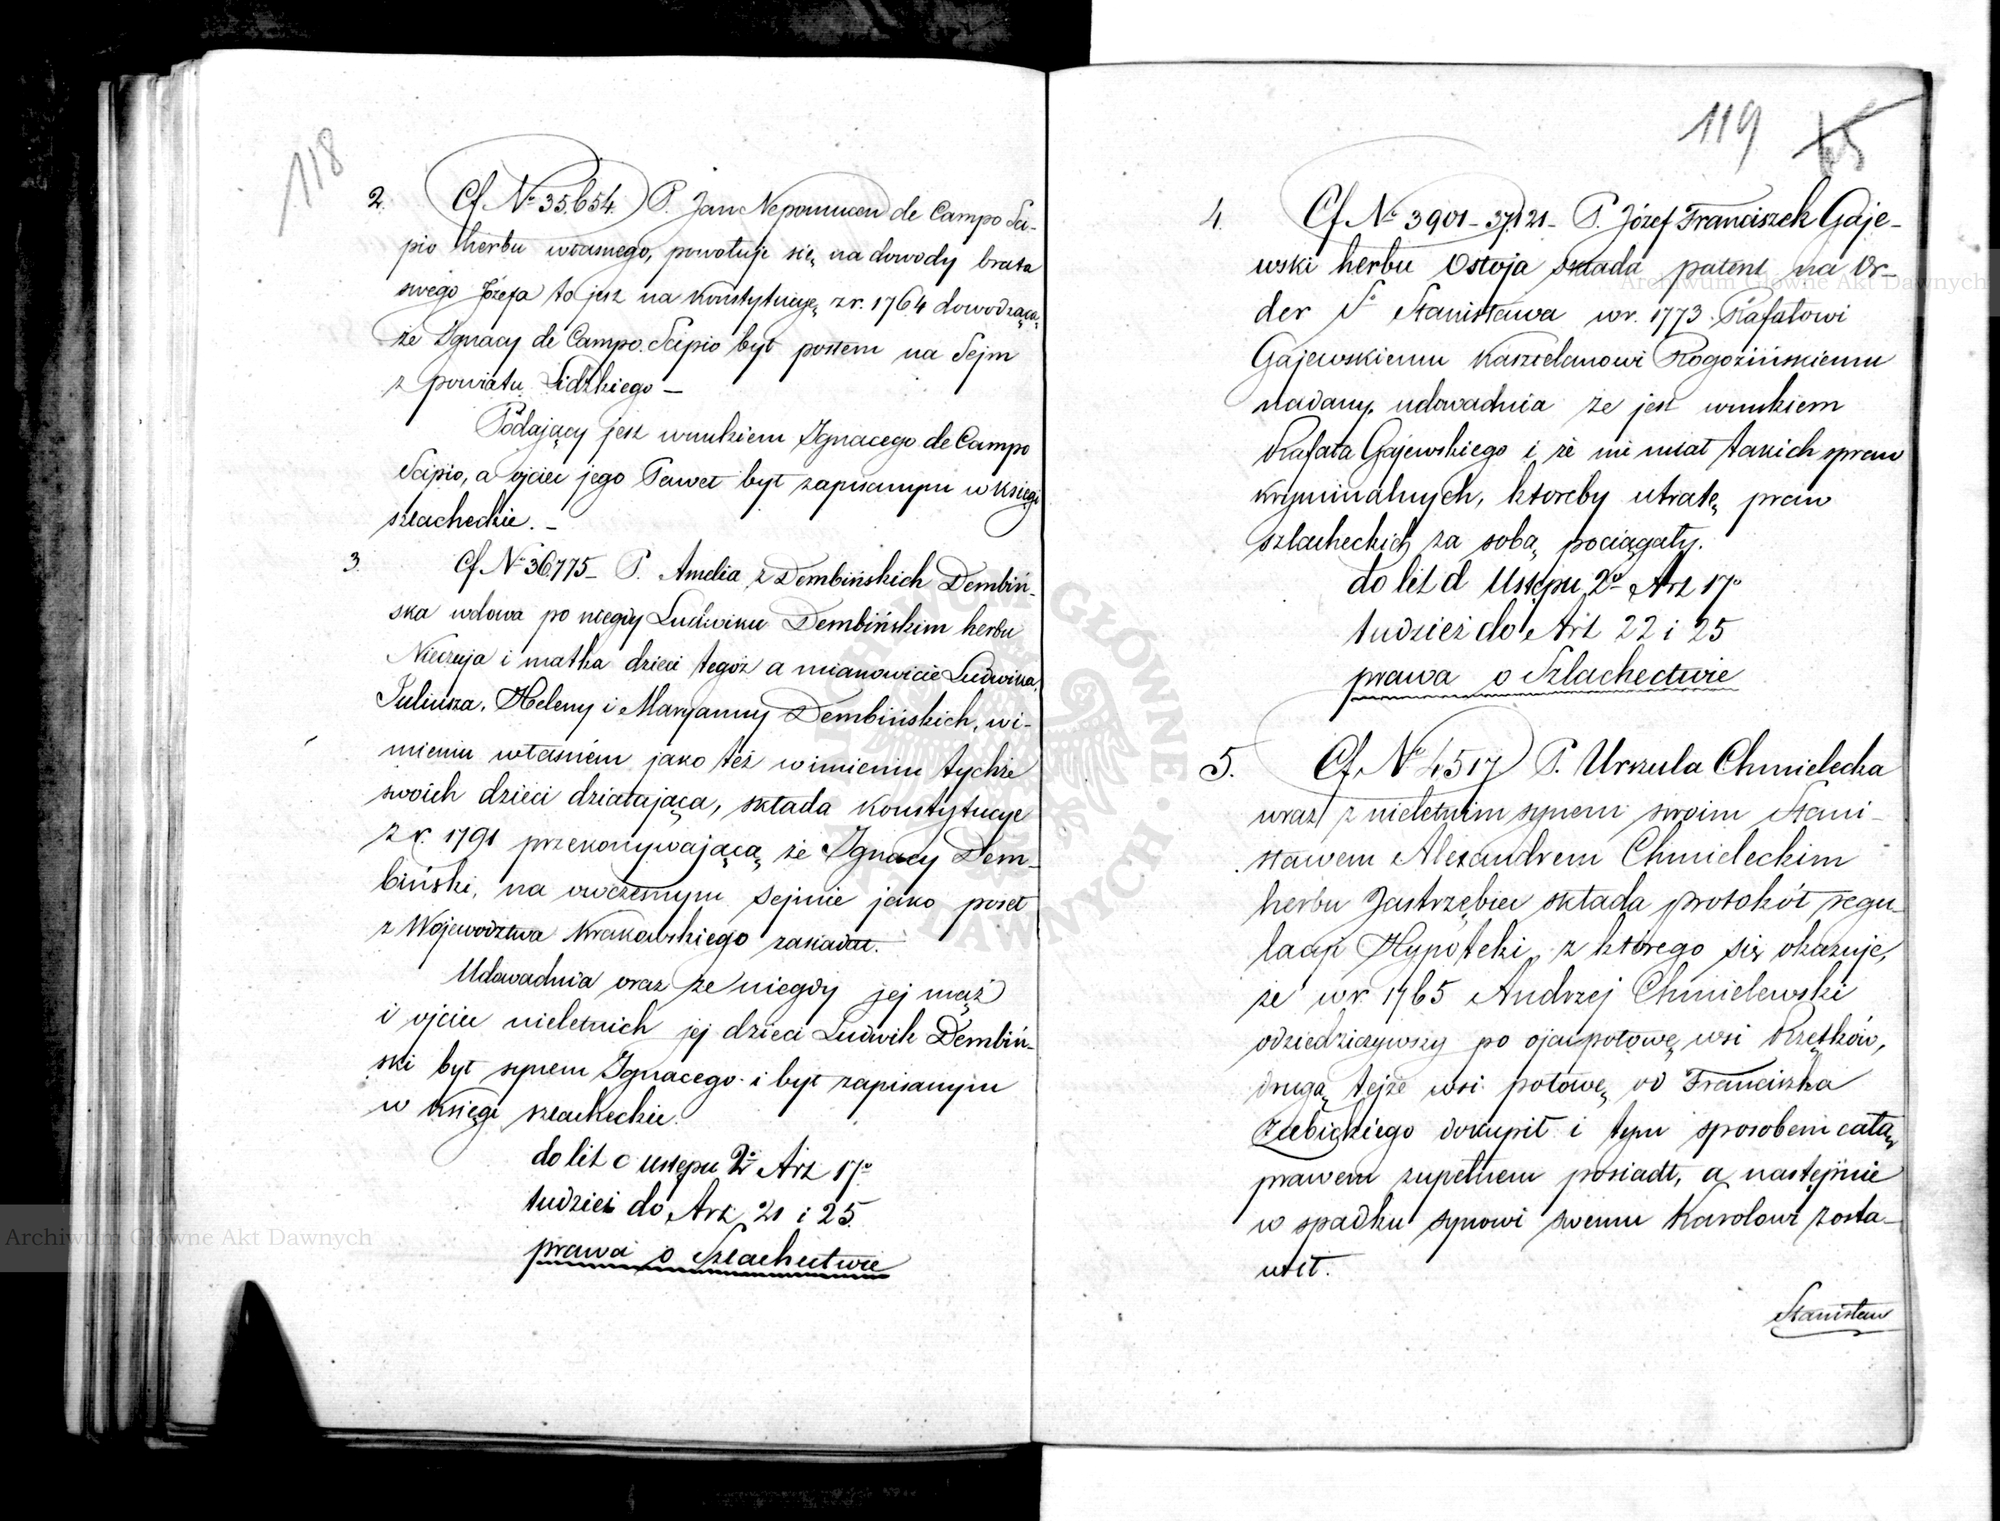 118
2. Cf Nº 35.654. P. Jan Nepomucen de Campo Sci-
pio herbu własnego, powołuje się na dowody brata
swego Józefa to jest na Konstytucyę z r. 1764 dowodzącą,
że Ignacy de Campo Scipio był posłem na Sejm
z powiatu Lidzkiego —
Podający jest wnukiem Ignacego de Campo
Scipio, a ojciec jego Paweł był zapisanym w Księgi
szlacheckie. —
3. Cf Nº 36.775 — P. Amelia z Dembińskich Dembiń-
ska wdowa po niegdy Ludwiku Dembińskim herbu
Nieczuja i matka dzieci tegoż a mianowicie Ludwika,
Juliusza, Heleny i Maryanny Dembińskich, w i-
mieniu własnem jako też w imieniu tychże
swoich dzieci działająca, składa Konstytucye
z r. 1791 przekonywającą że Ignacy Dem-
biński, na owczesnym Sejmie jako poseł
z Województwa Krakowskiego zasiadał.
Udowadnia oraz że niegdy jej mąż
i ojciec nieletnich jej dzieci Ludwik Dembiń-
ski był synem Ignacego i był zapisanym
w Księgi szlacheckie.
do lit c Ustępu 2º Art 17º
tudzież do Art. 21 i 25
prawa o Szlachectwie
119
4. Cf Nº 3901 - 37121 - P. Józef Franciszek Gaje-
wski herbu Ostoja składa patent na Or-
der Sº Stanisława w r. 1773 Rafałowi
Gajewskiemu Kasztelanowi Rogozińskiemu
nadany, udowadnia że jest wnukiem
Rafała Gajewskiego i że nie miał takich spraw
kryminalnych, któreby utratę praw
szlacheckich za sobą pociągały.
do lit d Ustępu 2º Art 17º
tudzież do Art 22 i 25
prawa o Szlachectwie
5. Cf Nº 4517 P. Urszula Chmielecka
wraz z nieletnim synem swoim Stani-
sławem Alexandrem Chmieleckim
herbu Jastrzębiec składa protokół regu-
lacyi Hypoteki, z którego się okazuje,
że w r. 1765 Andrzej Chmielewski
odziedziczywszy po ojcu połowę wsi Krzętków,
drugą tejże wsi połowę od Franciszka
Zubickiego dokupił i tym sposobem całą
prawem zupełnem posiadł, a następnie
w spadku synowi swemu Karolowi zosta-
wił.
Stanisław
Archiwum Główne Akt Dawnych
Archiwum Główne Akt Dawnych
ARCHIWUM GŁÓWNE AKT DAWNYCH